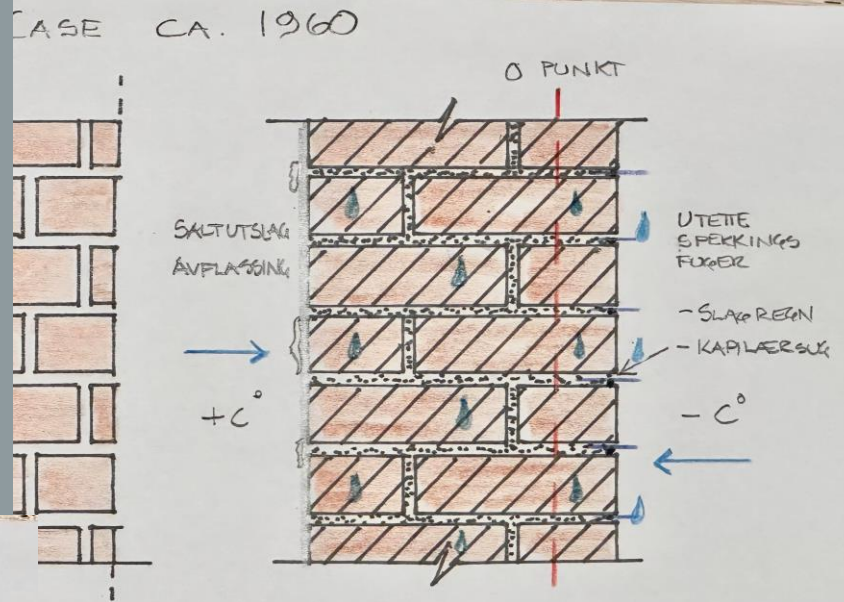 CASE CA. 1960
O PUNKT
SALTUTSLAG
AVFLASSING
UTETTE
SPEKKINGS
FUGER
- SLAGREGN
- KAPILÆRSUG
+C°
-C°